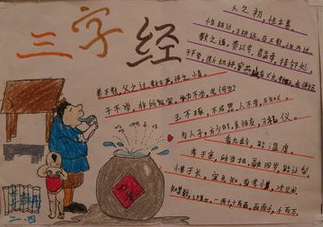 三字经
人之初,性本善
性相近,习相远,苟不教,性乃迁
教之道,贵以专,昔孟母,择邻处
子不学,断机杼,窦燕山,有义方,教五子,名俱扬
养不教,父之过,教不严,师之惰。
子不学,非所宜,幼不学,老何为?
玉不琢,不成器,人不学,不知义
为人子,方少时,亲师友,习礼仪。
香九龄,能温席
孝于亲,所当执,融四岁,能让梨
弟于长,宜先知,首孝弟,次见闻
知某数,识某文,一而十,十而百,百而千,千而万。